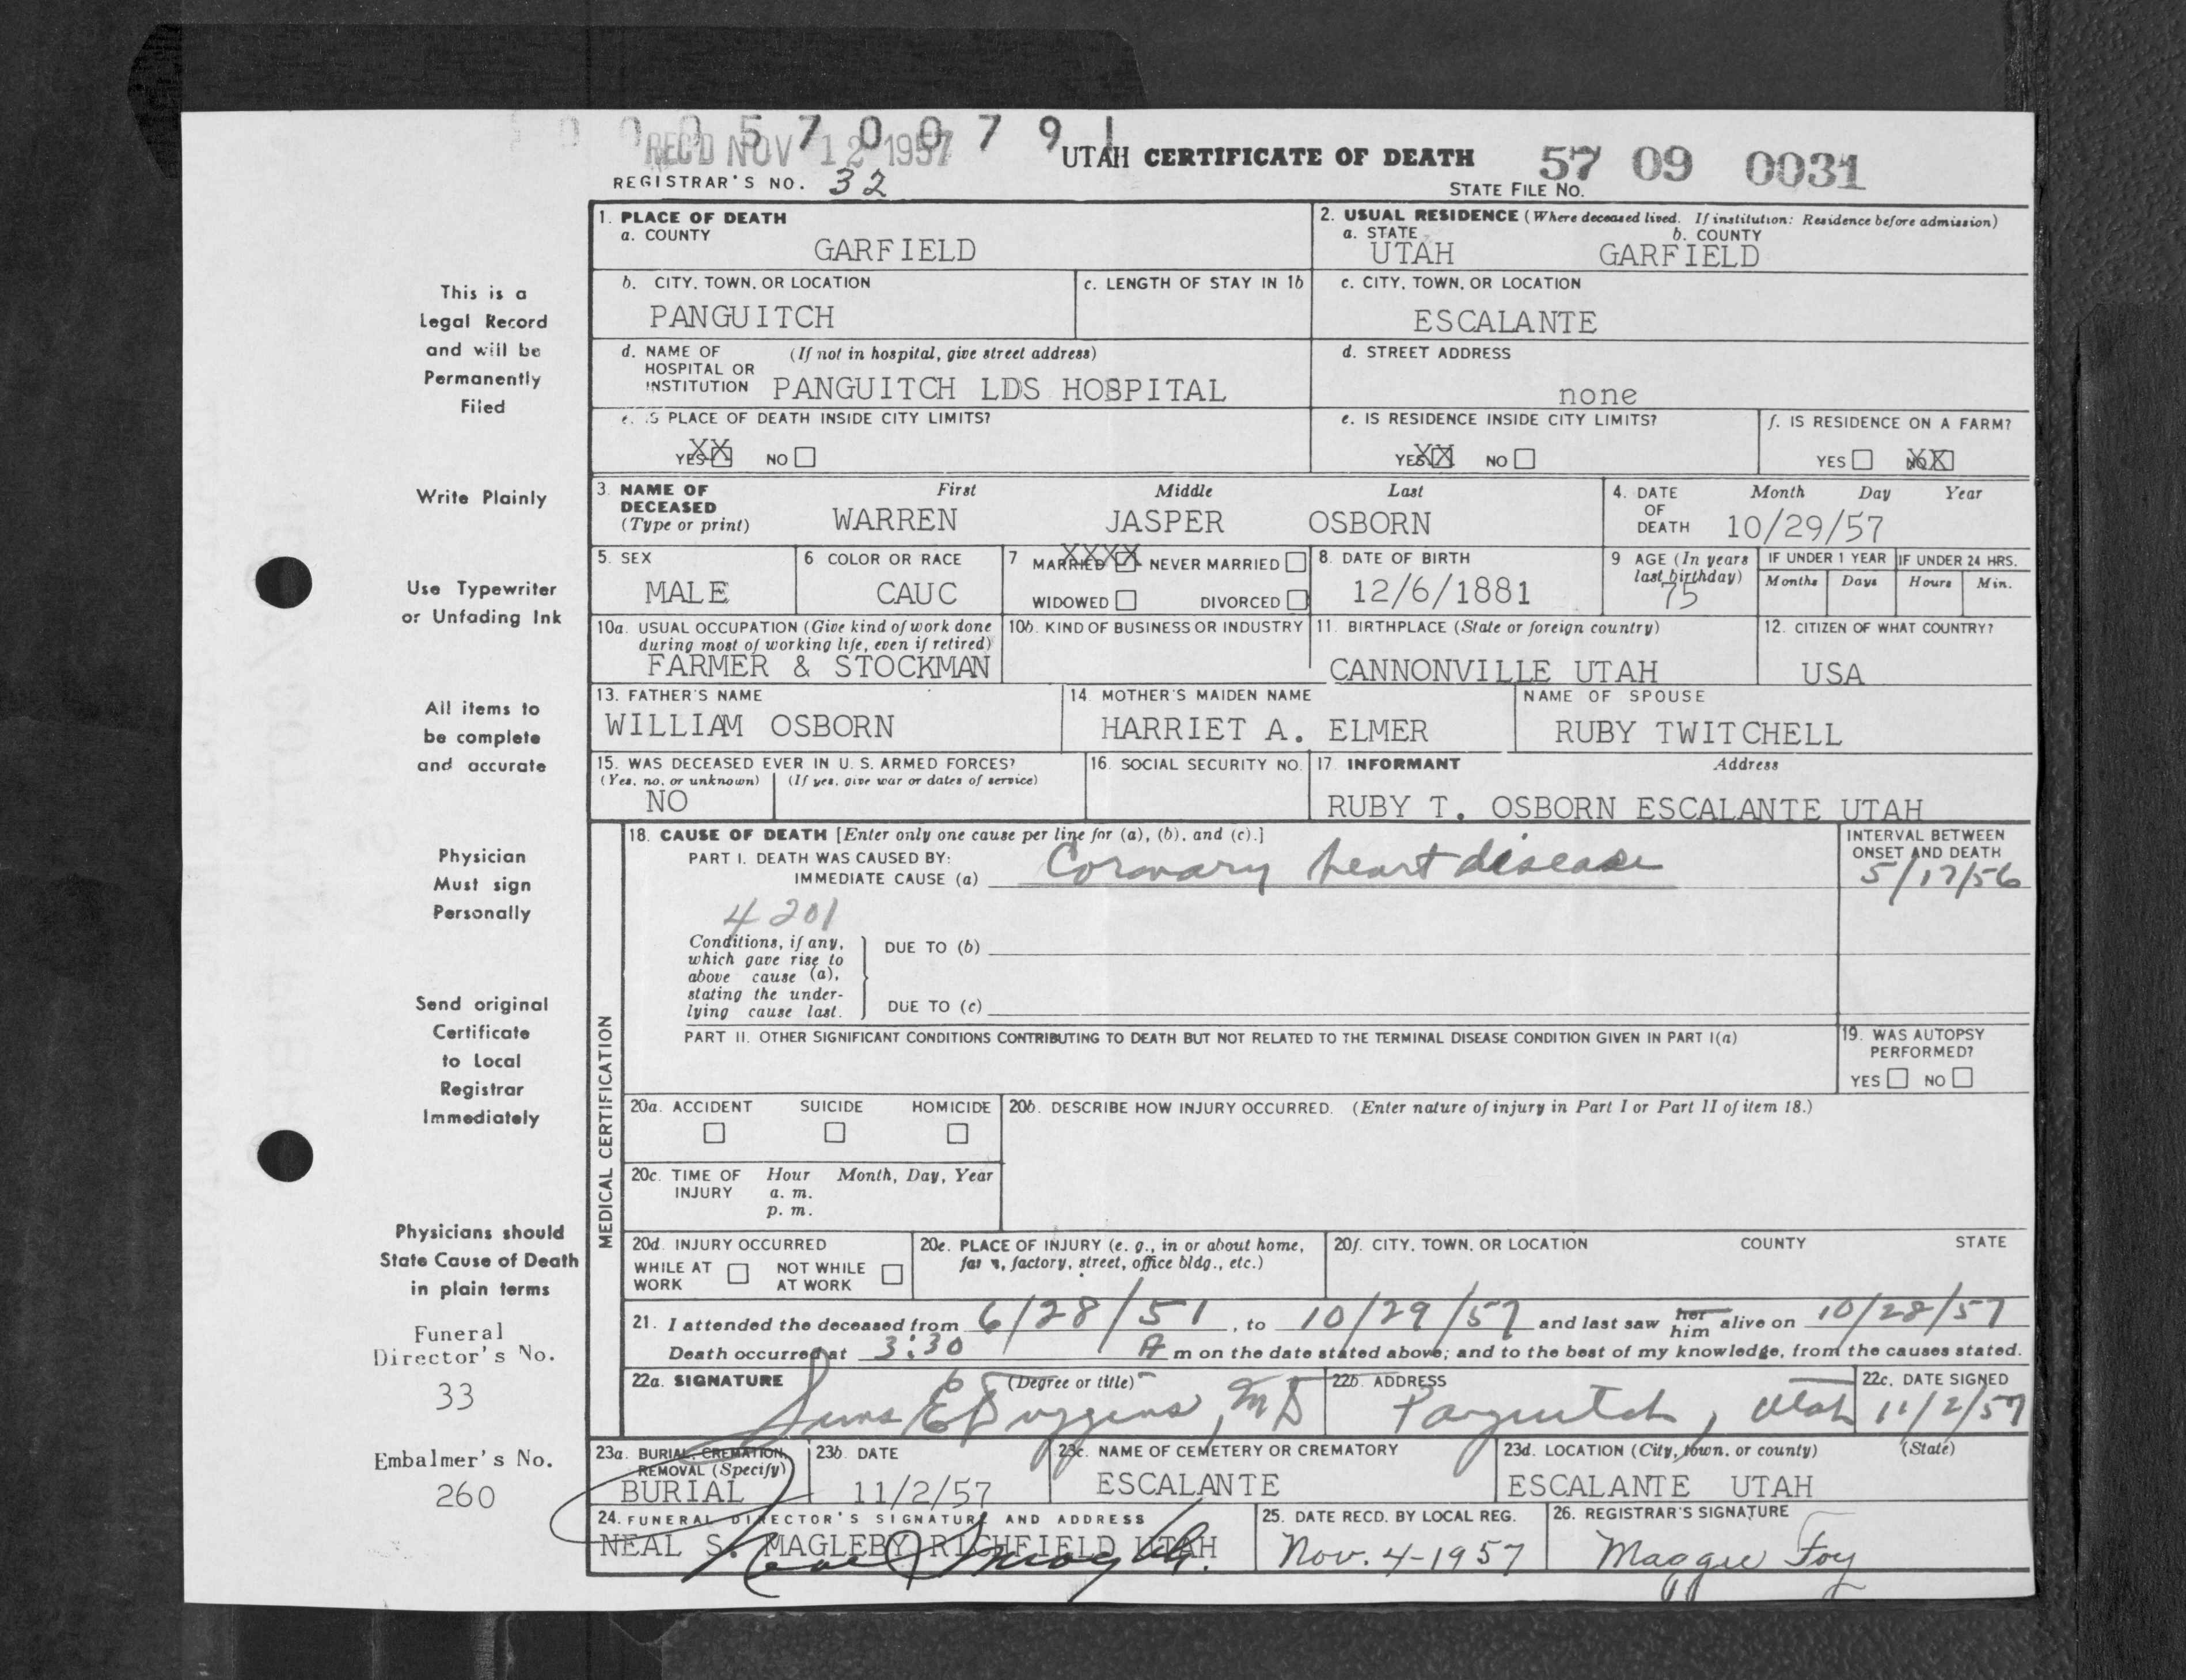 0 0 0 5 7 0 0 7 9 1
REC'D NOV 12 1957
UTAH CERTIFICATE OF DEATH 57 09 0031
REGISTRAR'S NO. 32 STATE FILE NO.
1. PLACE OF DEATH
a. COUNTY
GARFIELD
2. USUAL RESIDENCE (Where deceased lived. If institution: Residence before admission)
a. STATE b. COUNTY
UTAH GARFIELD
b. CITY, TOWN, OR LOCATION
PANGUITCH
c. LENGTH OF STAY IN 1b
c. CITY, TOWN, OR LOCATION
ESCALANTE
d. NAME OF (If not in hospital, give street address)
HOSPITAL OR
INSTITUTION PANGUITCH LDS HOSPITAL
d. STREET ADDRESS
none
e. IS PLACE OF DEATH INSIDE CITY LIMITS?
YES XX NO
e. IS RESIDENCE INSIDE CITY LIMITS?
YES XX NO
f. IS RESIDENCE ON A FARM?
YES NO XX
3. NAME OF DECEASED (Type or print)
First Middle Last
WARREN JASPER OSBORN
4. DATE OF DEATH
Month Day Year
10/29/57
5. SEX
MALE
6 COLOR OR RACE
CAUC
7 MARRIED XXXX NEVER MARRIED
WIDOWED DIVORCED
8. DATE OF BIRTH
12/6/1881
9 AGE (In years
last birthday)
75
IF UNDER 1 YEAR IF UNDER 24 HRS.
Months Days Hours Min.
10a. USUAL OCCUPATION (Give kind of work done
during most of working life, even if retired)
FARMER & STOCKMAN
10b. KIND OF BUSINESS OR INDUSTRY
11. BIRTHPLACE (State or foreign country)
CANNONVILLE UTAH
12. CITIZEN OF WHAT COUNTRY?
USA
13. FATHER'S NAME
WILLIAM OSBORN
14. MOTHER'S MAIDEN NAME
HARRIET A. ELMER
NAME OF SPOUSE
RUBY TWITCHELL
15. WAS DECEASED EVER IN U. S. ARMED FORCES?
(Yes, no, or unknown) (If yes, give war or dates of service)
NO
16. SOCIAL SECURITY NO.
17. INFORMANT Address
RUBY T. OSBORN ESCALANTE UTAH
MEDICAL CERTIFICATION
18. CAUSE OF DEATH [Enter only one cause per line for (a), (b), and (c).]
PART I. DEATH WAS CAUSED BY:
IMMEDIATE CAUSE (a) Coronary heart disease
INTERVAL BETWEEN
ONSET AND DEATH
5/17/56
4201
Conditions, if any,
which gave rise to
above cause (a),
stating the under-
lying cause last.
DUE TO (b)
DUE TO (c)
PART II. OTHER SIGNIFICANT CONDITIONS CONTRIBUTING TO DEATH BUT NOT RELATED TO THE TERMINAL DISEASE CONDITION GIVEN IN PART I(a)
19. WAS AUTOPSY
PERFORMED?
YES NO
20a. ACCIDENT SUICIDE HOMICIDE
20b. DESCRIBE HOW INJURY OCCURRED. (Enter nature of injury in Part I or Part II of item 18.)
20c. TIME OF INJURY Hour Month, Day, Year
a. m.
p. m.
20d. INJURY OCCURRED
WHILE AT WORK NOT WHILE AT WORK
20e. PLACE OF INJURY (e. g., in or about home,
farm, factory, street, office bldg., etc.)
20f. CITY, TOWN, OR LOCATION COUNTY STATE
21. I attended the deceased from 6/28/51, to 10/29/57 and last saw her him alive on 10/28/57
Death occurred at 3:30 A m on the date stated above; and to the best of my knowledge, from the causes stated.
22a. SIGNATURE (Degree or title)
Sims E Duggins, MD
22b. ADDRESS
Panguitch, Utah
22c. DATE SIGNED
11/2/57
23a. BURIAL, CREMATION,
REMOVAL (Specify)
BURIAL
23b. DATE
11/2/57
23c. NAME OF CEMETERY OR CREMATORY
ESCALANTE
23d. LOCATION (City, town, or county) (State)
ESCALANTE UTAH
24. FUNERAL DIRECTOR'S SIGNATURE AND ADDRESS
NEAL S. MAGLEBY RICHFIELD UTAH
25. DATE RECD. BY LOCAL REG.
Nov. 4-1957
26. REGISTRAR'S SIGNATURE
Maggie Foy
This is a
Legal Record
and will be
Permanently
Filed
Write Plainly
Use Typewriter
or Unfading Ink
All items to
be complete
and accurate
Physician
Must sign
Personally
Send original
Certificate
to Local
Registrar
Immediately
Physicians should
State Cause of Death
in plain terms
Funeral
Director's No.
33
Embalmer's No.
260